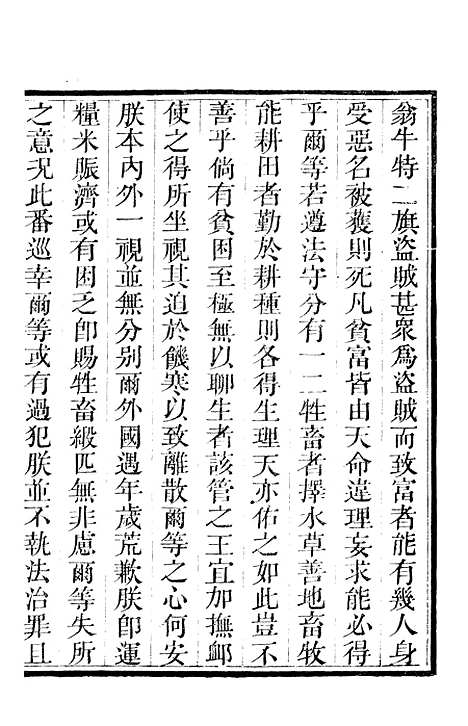 翁牛特二旗盜賊甚衆爲盜賊而致富者能有幾人身
受惡名被獲則死凡貧富皆由天命違理妄求能必得
乎爾等若遵法守分有一二牲畜者擇水草善地畜牧
能耕田者勤於耕種則各得生理天亦佑之如此豈不
善乎倘有貧困至極無以聊生者該管之王宜加撫卹
使之得所坐視其迫於饑寒以致離散爾等之心何安
朕本內外一視並無分别爾外國遇年歲荒歉朕卽運
糧米賑濟或有困乏卽賜牲畜緞匹無非慮爾等失所
之意況此番巡幸爾等或有過犯朕並不執法治罪且